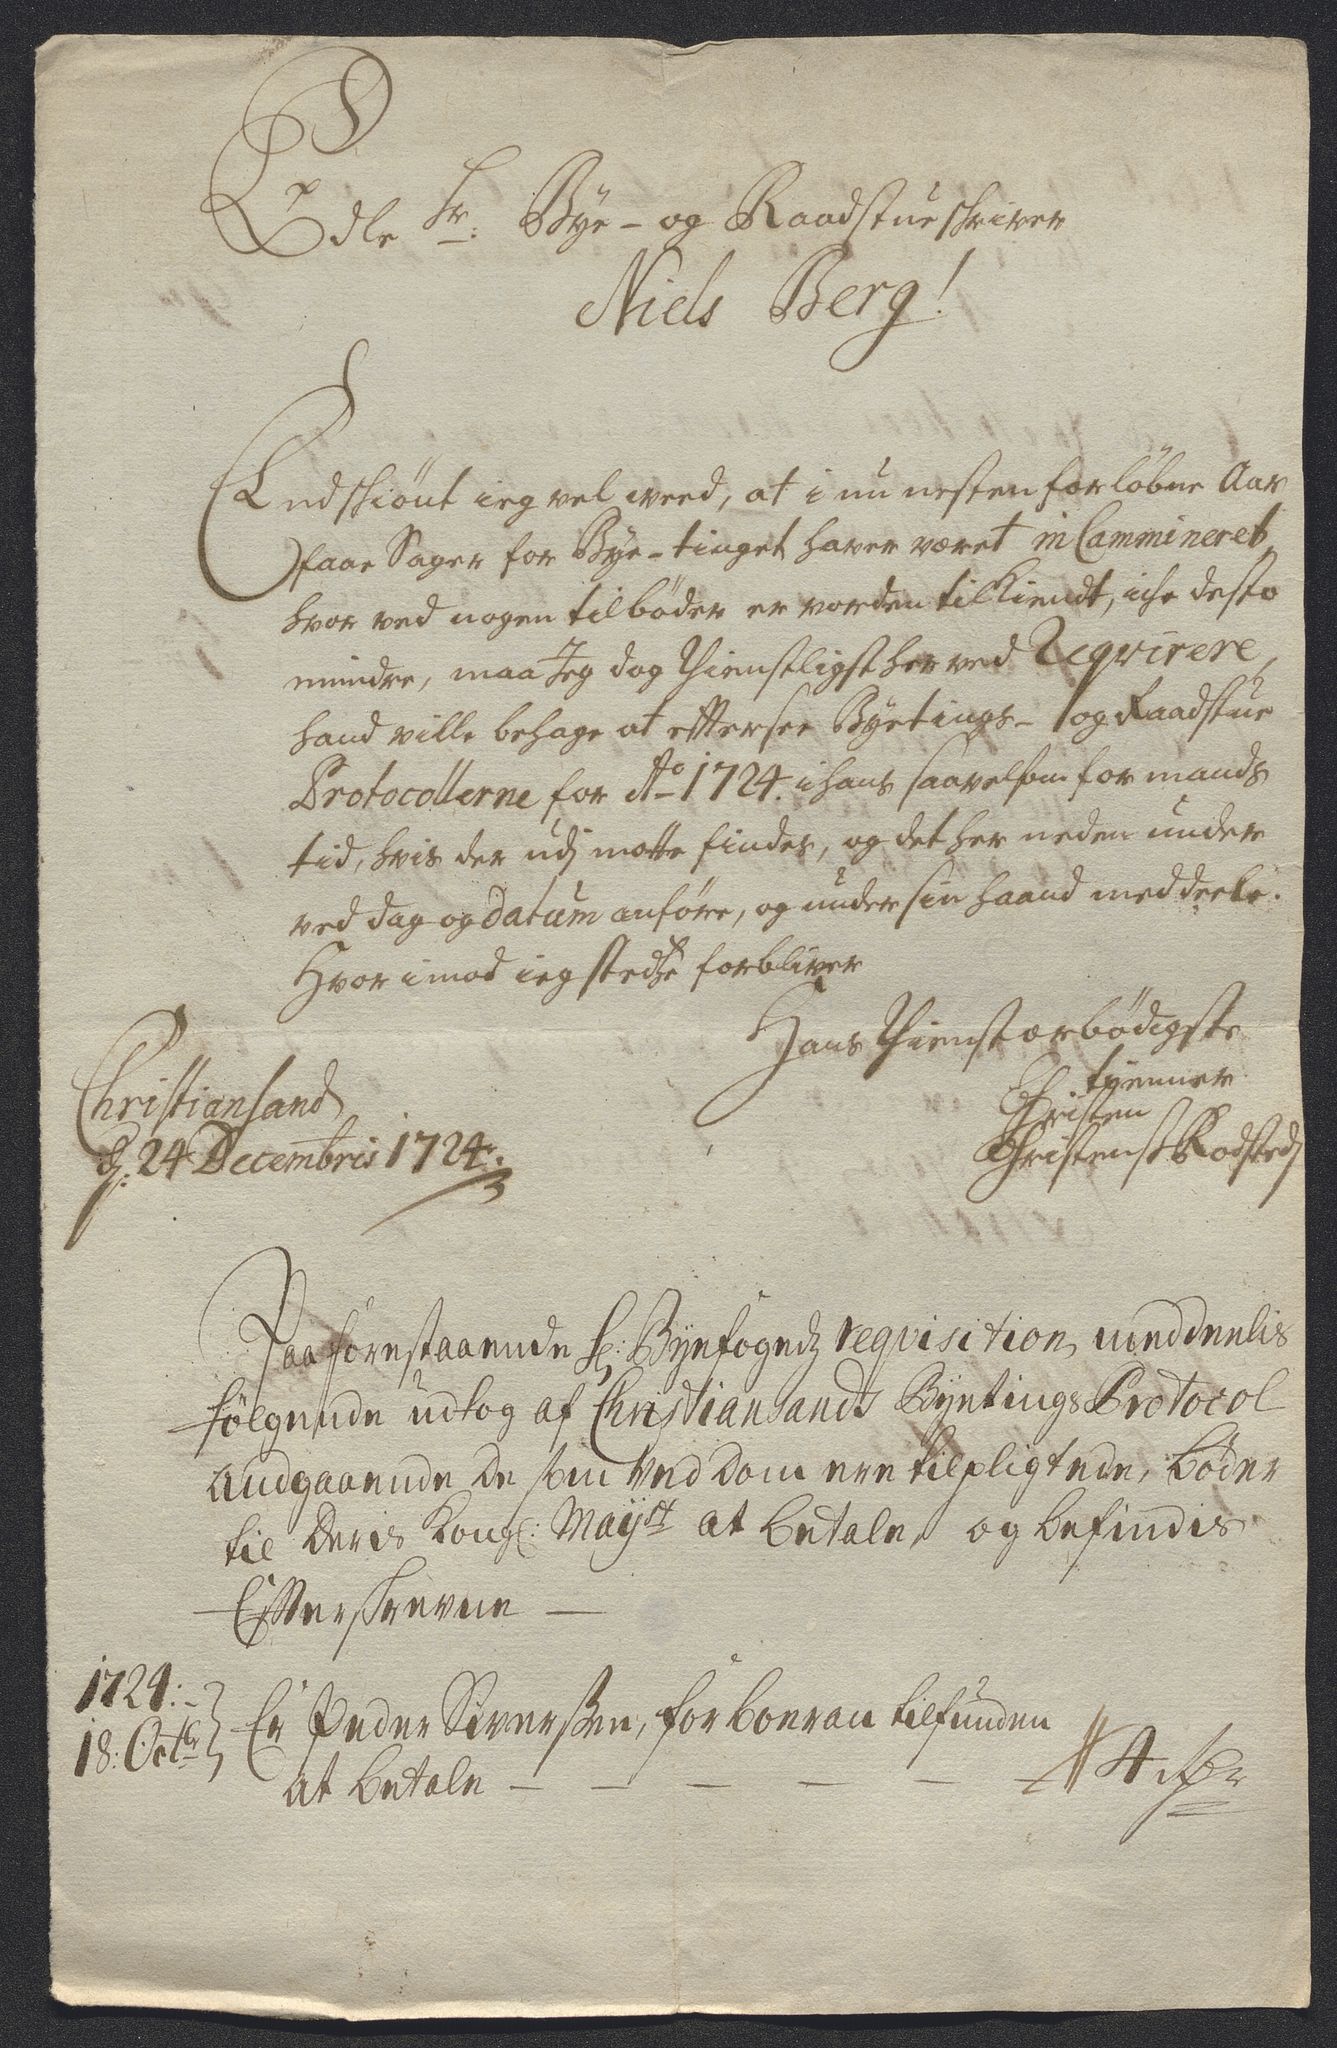 Edle Hr: Bÿe- og Raadstueskriver
Niels Berg!
Endskiönt ieg vel weed, at i nu nesten forløbne Aar
faae Sager for Bÿe-tinget haver været in Cammineret
hvor ved nogen til bøder er vorden tilkiendt, iche desto
mindre, maa Jeg dog thienstligst her ved Reqvirere,
hand ville behage at efftersee Bÿetings- og Raadstue
Protocollerne for Ao 1724. i hans saavelsom formands
tid, hvis der udj motte findes, og det her neden under
ved dag og datum anføre, og under sin haand meddeele.
Hvorimod ieg stedse forbliver
Hans thienstærbødigste
tienner
Christen
Christiansand
d: 24 Decembris 1724.
Christenss Rodsted
Paa forestaaende Hr: Bÿefogedz reqvisition, meddeelis
følgende udtog af Christiansands Bÿetings Protocol
andgaaende de som ved dom ere tilpligtede, bøder
til Deris Kongl: Maÿst at betale, og befindis
Effterskrevne —
1724:
18: Octbr
Er Peder Siverssen, for boeran tilfunden
at betale — — — — — — 4 rdr